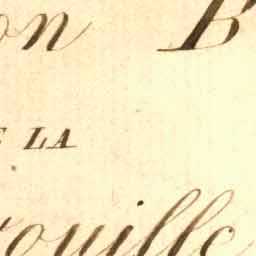 on B
E LA
ouille